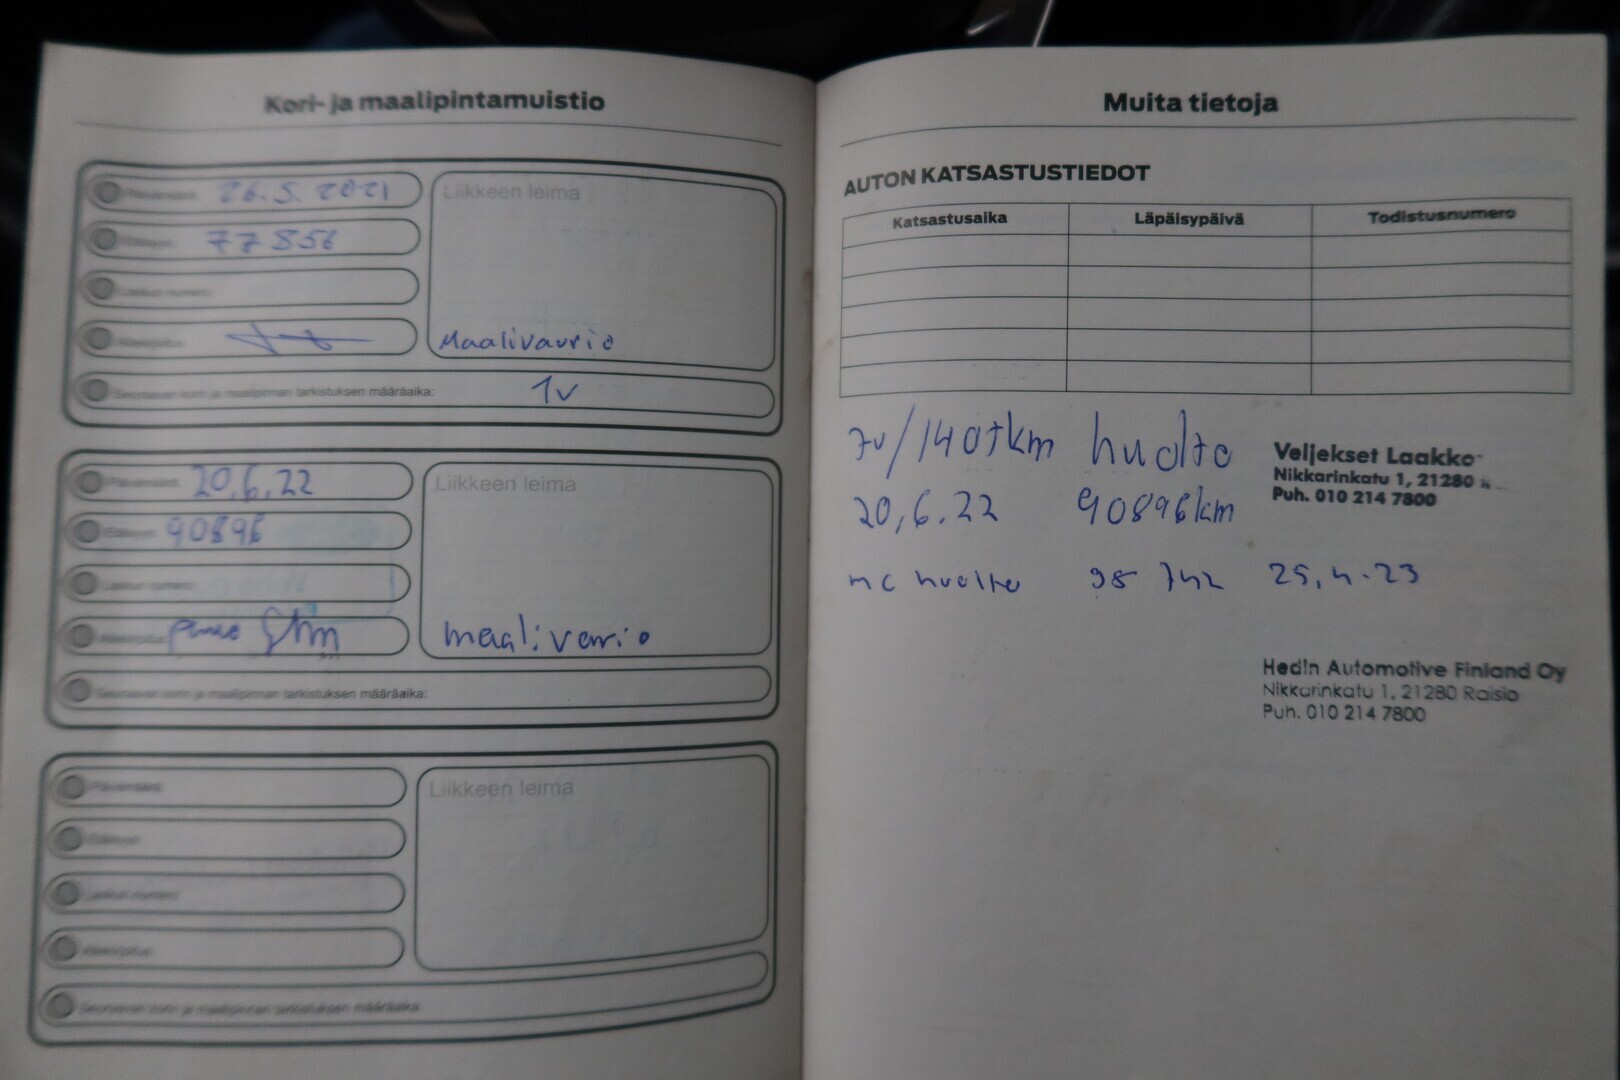 Kori- ja maalipintamuistio
Päivämäärä 26.5.2021
77856
Laskun numero
Liikkeen leima
Maalivaurio
Seuraavan korin ja maalipinnan tarkistuksen määräaika: 1v
Päivämäärä 20.6.22
90896
Laskun numero
Liikkeen leima
maalivaurio
Seuraavan korin ja maalipinnan tarkistuksen määräaika:
Päivämäärä
Laskun numero
Allekirjoitus
Liikkeen leima
Seuraavan korin ja maalipinnan tarkistuksen määräaika:
Muita tietoja
AUTON KATSASTUSTIEDOT
Katsastusaika Läpäisypäivä Todistusnumero
7v/140tkm huolto
20.6.22 90896km
Veljekset Laakko
Nikkarinkatu 1, 21280
Puh. 010 214 7800
huolto 98 742 25.4.23
Hedin Automotive Finland Oy
Nikkarinkatu 1, 21280 Raisio
Puh. 010 214 7800